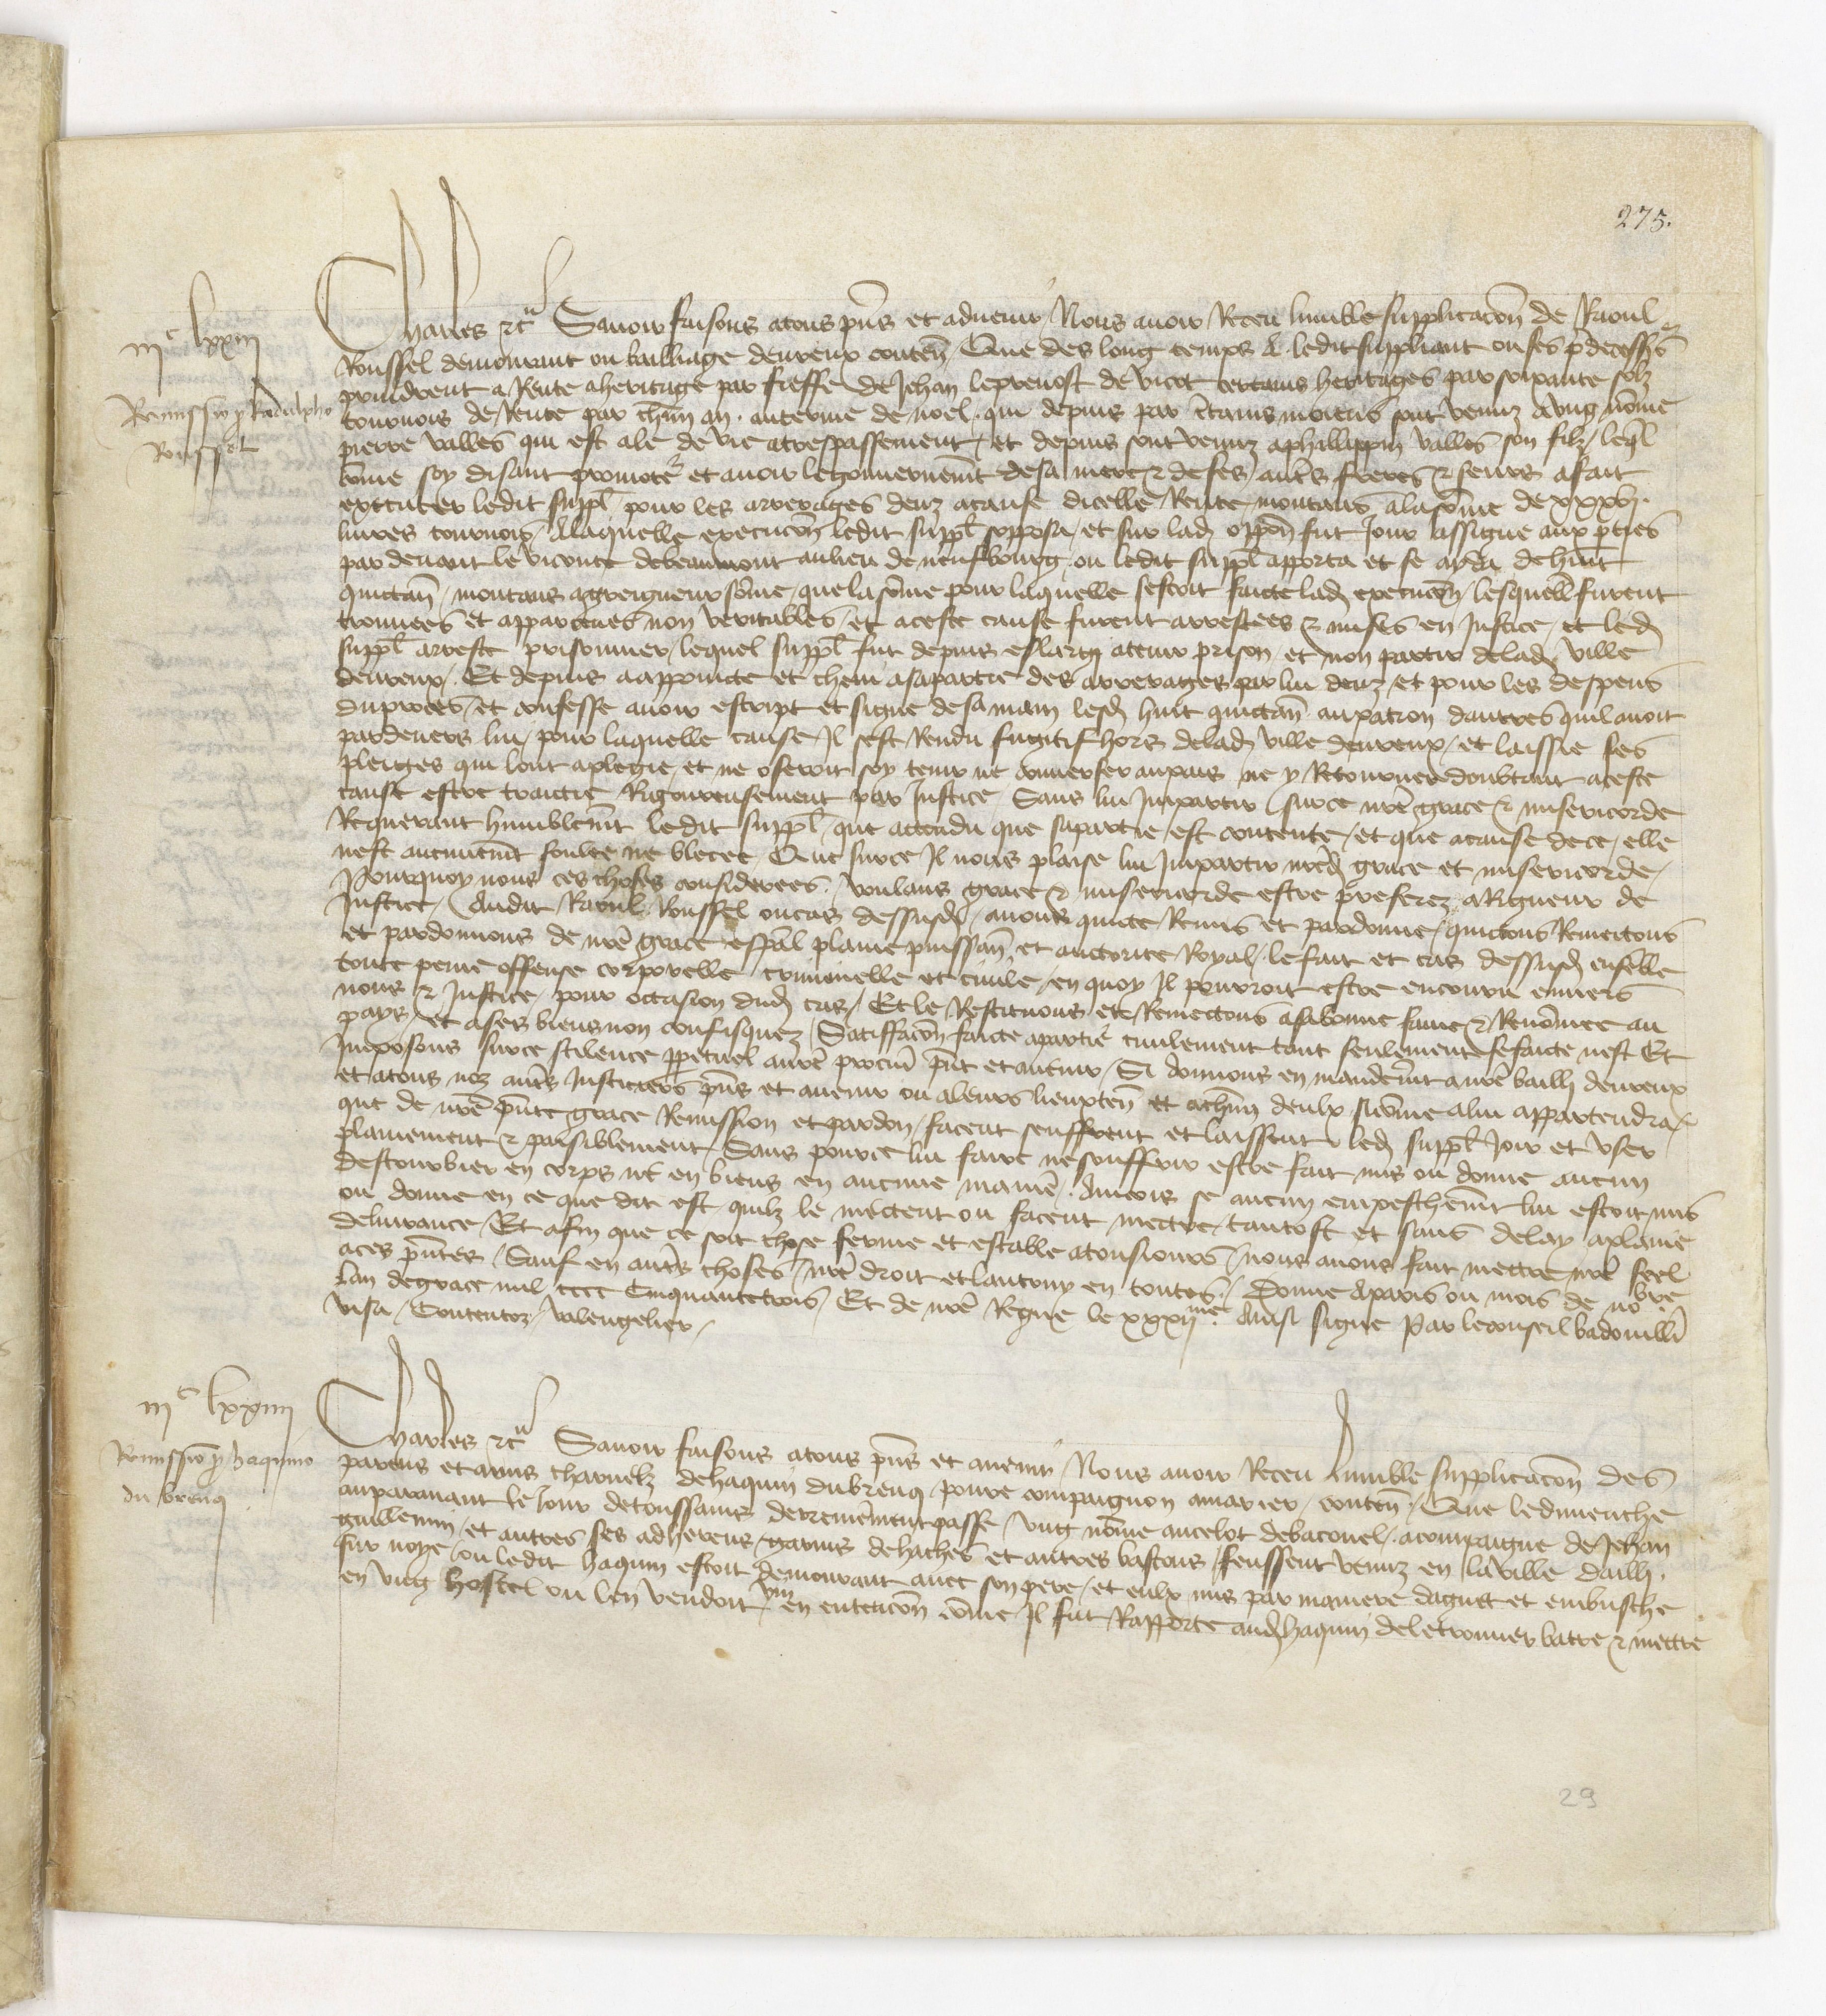 275.
iijc lxxiij
Remissio p Radulpho
Roussel
Charles etc Savoir faisons a tous pñs et advenir Nous avoir Receu lumble supplicacõn de Raoul
Roussel demourant ou bailliage devreux conteñ Que des long temps A ledit suppliant ou ses p̃decess̃rs
prindrent a Rente a heritage par fieffe de Jehan leprevost de vicot certains heritages par soixante solz
tournois de Rente par chũn an au terme de noel qui depuis par c̃tains moiens sont venuz a ung nõme
pierre valles qui est ale de vie a trespassement et depuis sont venuz a phillippin valles son filz leql̃
cõme soy disant promotẽ et avoir le gouvernem̃t de sa mere et de ses autr̃s freres et seurs a fait
executer ledit suppl̃ pour les arrerages deuz a cause dicelle Rente montans a la sõme de xxxvj
livres tournois A laquelle execucõn ledit suppl̃ sopposa et sur lad oppõn fut Jour assigne aux p̃ties
par devant le viconte de beaumont au lieu de neufbourg ou ledit suppl̃ apporta et se ayda de huit
quictañ montans a greigneur sõme que la sõme pour laquelle sestoit faicte lad execucõn lesquell̃ furent
trouvees et apparceues non veritables et a ceste cause furent arrestees et mises en Justice et led
suppl̃ arreste prisonnier lequel suppl̃ fut depuis eslargy a tenir prison et non partir de lad ville
devreux Et depuis a appoincte et chevi a sa partie des arrerages par lui deuz et pour les despens
du proces et confesse avoir escript et signe de sa main lesd huit quictañ au patron dautres quil avoit
par devers lui pour laquelle cause Il sest Rendu fugitif hors de lad ville devreux et laissie ses
pleiges qui lont aplegie et ne oseroit soy tenir ne converser au pais ne y Retourner doubtant a ceste
cause estre traictie Rigoureusement par Justice Sans lui Impartir sur ce nr̃e grace et misericorde
Requerant humblem̃t ledit suppl̃ que attendu que sa partie est contente et que a cause de ce elle
nest aucunem̃t foulee ne blecee Que sur ce Il nous plaise lui Impartir nosd grace et misericorde
Pourquoy nous ces choses considerees voulans grace et misericorde estre preferez a Rigueur de
Justice Audit Raoul Roussel ou cas dessusd avons quicte Remis et pardonne quictons Remectons
et pardonnons de nr̃e grace esp̃al plaine puissañ et auctorite Royal le fait et cas dessusd ensemble
toute peine offense corporelle criminelle et civile en quoy Il pourroit estre encouru envers
nous et Justice pour occasion dud cas Et le Restituons et Remectons a sa bonne fame et Renõmee au
pays et a ses biens non confisquez Satisfacõn faicte a partie civilement tant seulement se faicte nest Et
Imposons sur ce scilence p̃petuel a nr̃e procur̃ p̃nt et advenir Si donnons en mandem̃t a nr̃e bailli devreux
et a tous noz autr̃s Justiciers p̃ns et avenir ou a leurs lieuxteñ et a chũn deulx si cõme a lui appartendra
que de nr̃e p̃nte grace Remission et pardon facent seuffrent et laissent led suppl̃ Joir et user
plainement et paisiblement Sans pour ce lui faire ne souffrir estre fait mis ou donne aucun
destourbier en corps ne en biens en aucune manier̃ Aincois se aucun empeschem̃t lui estoit mis
ou donne en ce que dit est quilz le mectent ou facent mectre tantost et sans delay a plaine
delivrance Et afin que ce soit chose ferme et estable a tousjours nous avons fait mettre nr̃e seel
a ces p̃ntes Sauf en autr̃s choses nr̃e droit et lautruy en toutes Donne A paris ou mois de novbre
Lan de grace mil cccc Cinquante trois Et de nr̃e Regne le xxxijme Ainsi signe Par le conseil badouilli̇̃
visa Contentor valengelier
iijc lxxiiij
Remissio p haquino
du breuq
Charles etc Savoir faisons a tous p̃ns et avenir Nous avoir Receu lumble supplicacõn des
parens et amis charnelz de haquin du breuq povre compaignon a marier conteñ Que le dimenche
auparavant le Jour de toussains derrenierement passe ung nõme ancelot de bacouel acompaigne de Jehan
guillemin et autres ses adherens garnis de haches et autres bastons feussent venuz en la ville dailli
sur noye ou ledit haquin estoit demourant avec son pere et eulx mis par maniere daguet et embusche
en ung hostel ou len vendoit vin en entencõn cõme Il fut Rapporte aud haquin de le trouver batre et mettre
29